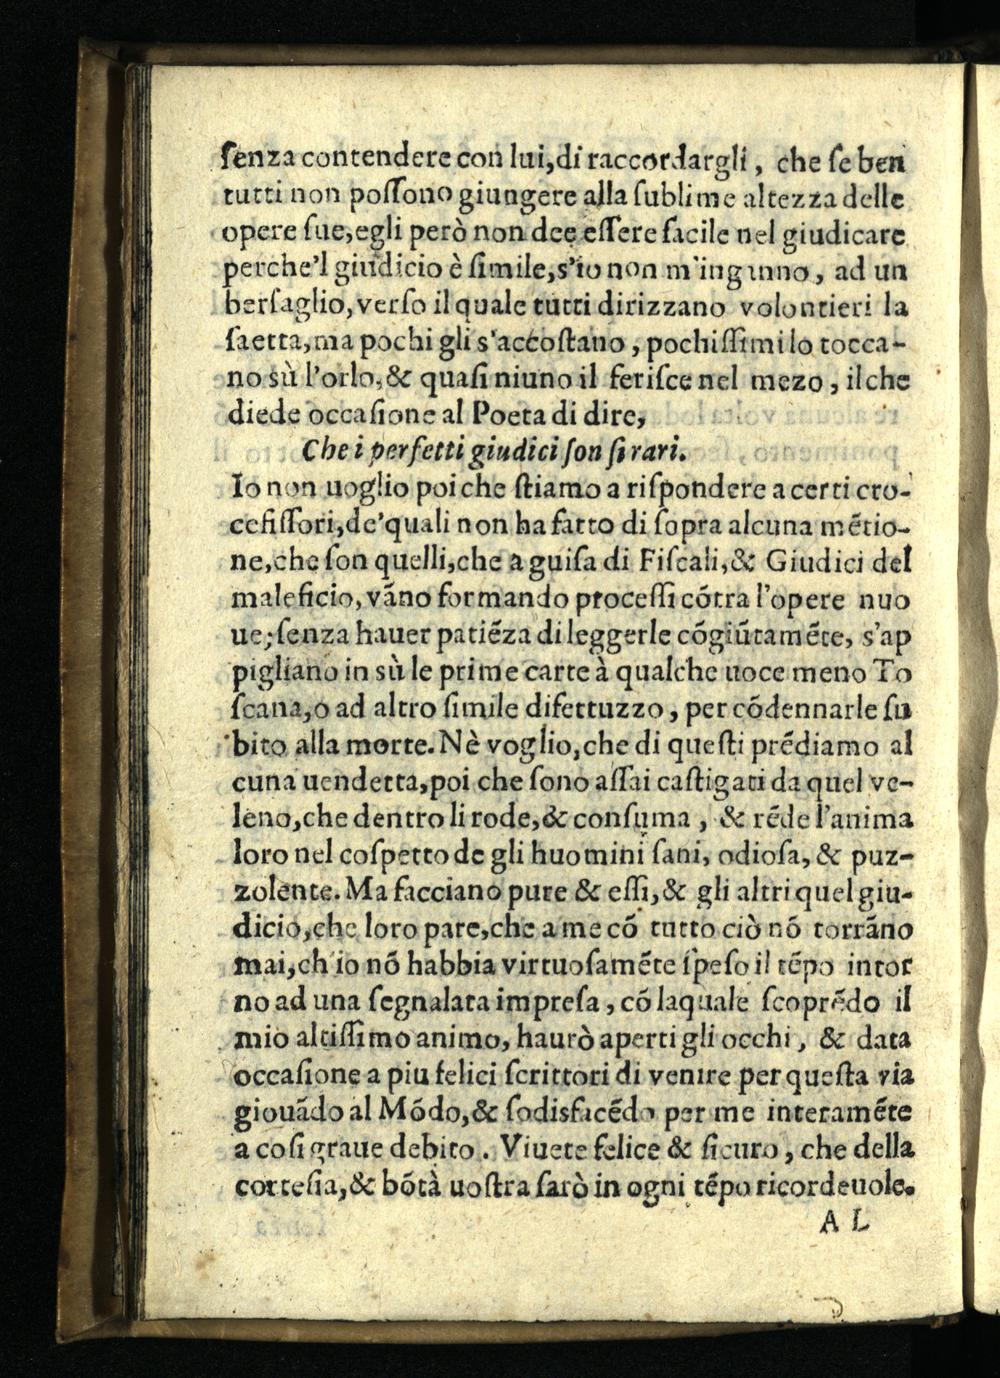 ſenza contendere con lui, di raccordargli, che ſe ben
tutti non poſſono giungere alla ſublime altezza delle
opere ſue, egli però non dee eſſere facile nel giudicare
perche'l giudicio è ſimile, s'io non m'inganno, ad un
berſaglio, verſo il quale tutti dirizzano volontieri la
ſaetta, ma pochi gli s'accoſtano, pochiſſimi lo tocca-
no sù l'orlo, & quaſi niuno il feriſce nel mezo, ilche
diede occaſione al Poeta di dire,
Che i perfetti giudici ſon ſi rari.
Io non uoglio poi che ſtiamo a riſpondere a certi cro-
cefiſſori, de'quali non ha fatto di ſopra alcuna mētio-
ne, che ſon quelli, che a guiſa di Fiſcali, & Giudici del
maleficio, vāno formando proceſſi cōtra l'opere nuo
ue; ſenza hauer patiēza di leggerle cōgiūtamēte, s'ap
pigliano in sù le prime carte à qualche uoce meno To
ſcana, o ad altro ſimile difettuzzo, per cōdennarle ſu
bito alla morte. Nè voglio, che di queſti prēdiamo al
cuna uendetta, poi che ſono aſſai caſtigati da quel ve-
leno, che dentro li rode, & conſuma, & rēde l'anima
loro nel coſpetto de gli huomini ſani, odioſa, & puz-
zolente. Ma facciano pure & eſſi, & gli altri quel giu-
dicio, che loro pare, che a me cō tutto ciò nō torrāno
mai, ch'io nō habbia virtuoſamēte ſpeſo il tēpo intor
no ad una ſegnalata impreſa, cō laquale ſcoprēdo il
mio altiſſimo animo, haurò aperti gli occhi, & data
occaſione a piu felici ſcrittori di venire per queſta via
giouādo al Mōdo, & ſodisfacēdo per me interamēte
a coſi graue debito. Viuete felice & ſicuro, che della
corteſia, & bōtà uoſtra ſarò in ogni tēpo ricordeuole.
AL